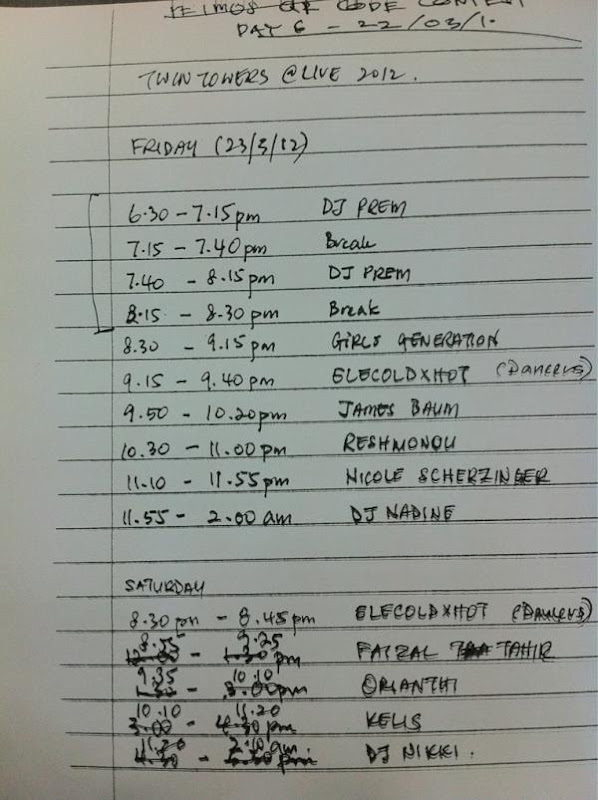 CODE CONTEST
DAY 6 - 22/03/1
TWIN TOWERS @LIVE 2012.
FRIDAY (23/3/12)
6.30 - 7.15pm DJ PREM
7.15 - 7.40pm Break
7.40 - 8.15pm DJ PREM
8.15 - 8.30pm Break
8.30 - 9.15pm GIRLS GENERATION
9.15 - 9.40pm ELECOLDXHOT (Dancers)
9.50 - 10.20pm JAMES BAUM
10.30 - 11.00pm RESHMONU
11.10 - 11.55pm NICOLE SCHERZINGER
11.55 - 2.00am DJ NADINE
SATURDAY
8.30pm - 8.45pm ELECOLDXHOT (Dancers)
8.55 - 9.25 FAIZAL TAHIR
9.35 - 10.10 ORIANTHI
10.10 - 11.20 KELIS
11.20 - 2.10am. DJ NIKKI.